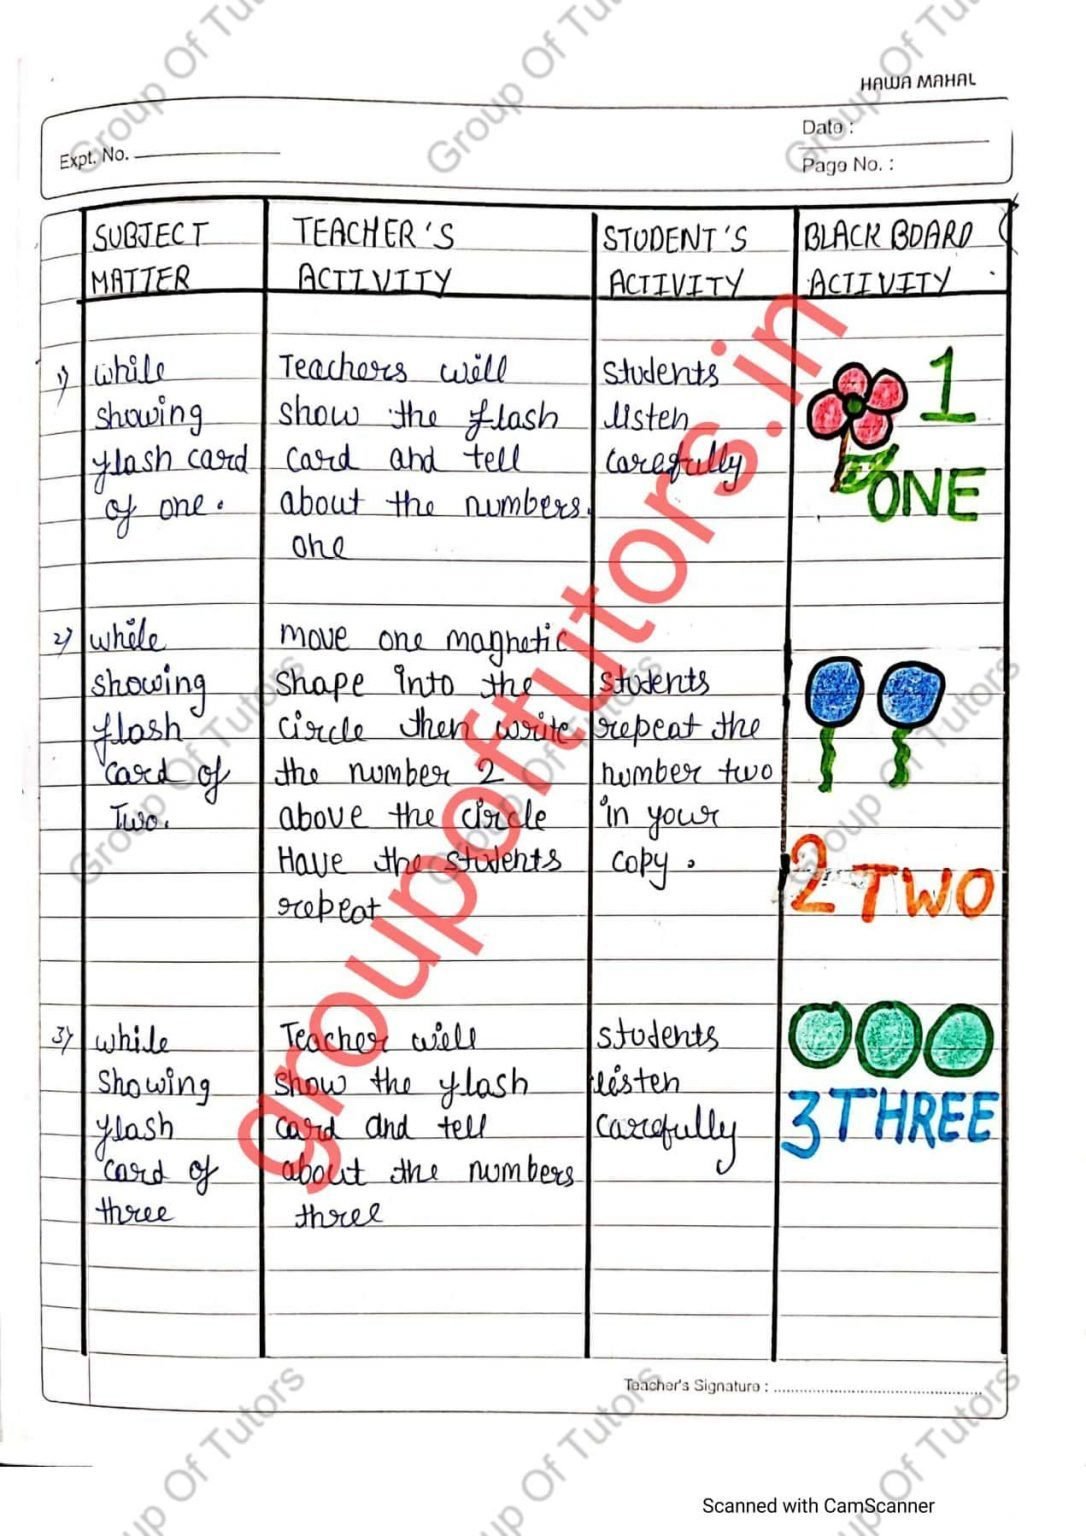 HAWA MAHAL
Expt. No.
Date :
Page No. :
SUBJECT MATTER
TEACHER'S ACTIVITY
STUDENT'S ACTIVITY
BLACK BOARD ACTIVITY
1)
while
showing
flash card
of one.
Teachers will
show the flash
card and tell
about the numbers.
one
Students
listen
carefully
1
ONE
2)
while
showing
flash
card of
Two.
move one magnetic
shape into the
circle then write
the number 2
above the circle
Have the students
repeat
students
repeat the
number two
in your
copy.
2 TWO
3)
while
showing
flash
card of
three
Teacher will
show the flash
card and tell
about the numbers
three
students
listen
carefully
3 THREE
Teacher's Signature :
groupoftutors.in
Group Of Tutors
Group Of Tutors
Group Of Tutors
Group Of Tutors
Group Of Tutors
Group Of Tutors
Group Of Tutors
Group Of Tutors
Group Of Tutors
Scanned with CamScanner